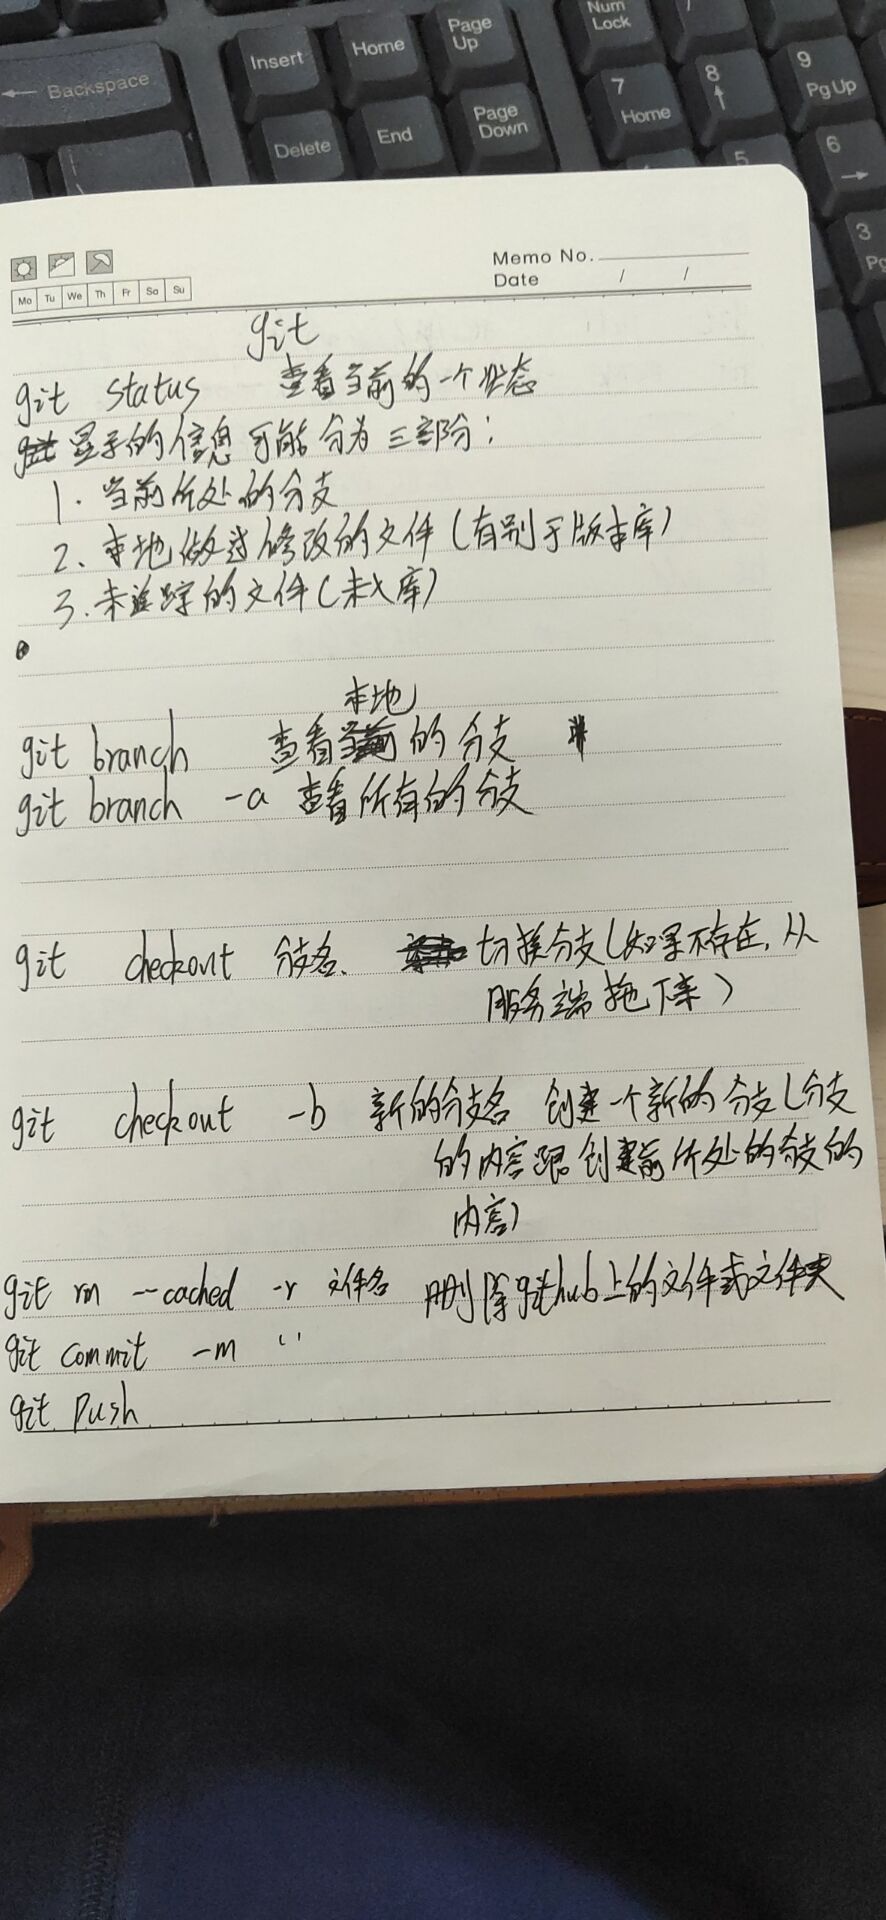 ← Backspace
Insert
Home
Page Up
Num Lock
/
Delete
End
Page Down
7 Home
8 ↑
9 Pg Up
5
6 →
3
Memo No.
Date / /
Mo Tu We Th Fr Sa Su
git
git status 查看当前的一个状态
显示的信息可能分为三部分:
1. 当前所处的分支
2、本地做过修改的文件(有别于版本库)
3.未追踪的文件(未入库)
本地
git branch 查看的分支
git branch -a 查看所有的分支
git checkout 分支名、 切换分支(如果不存在,从
服务端拖下来)
git checkout -b 新的分支名 创建一个新的分支(分支
的内容跟创建前所处的分支的
内容)
git rm --cached -r 文件名 删除github上的文件或文件夹
git commit -m ''
git push